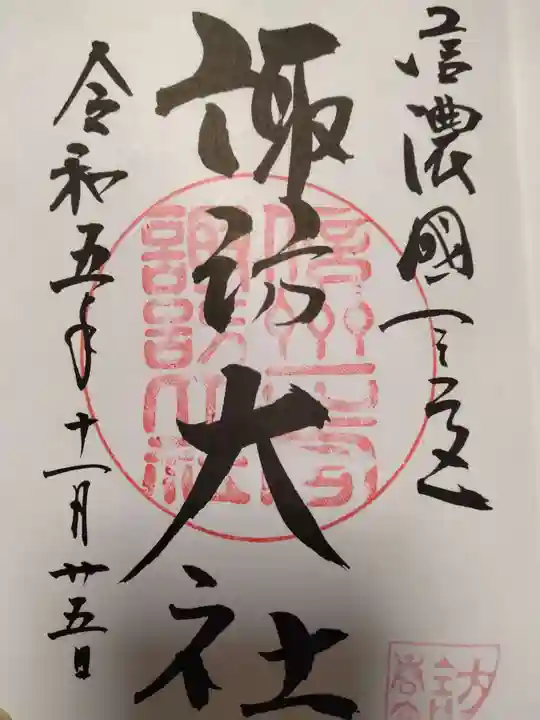 信濃國一之宮
諏訪大社
令和五年十一月廿五日